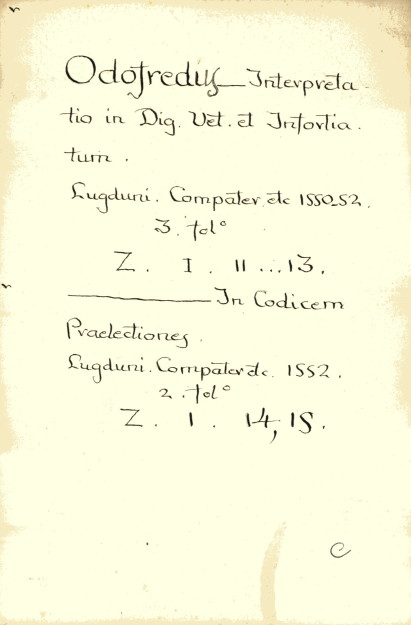 Odofredus — Interpreta-
tio in Dig. Vet. et Infortia-
tum.
Lugduni. Compater. etc 1550-52.
3. fol°
Z. I. 11...13.
— In Codicem
Praelectiones.
Lugduni. Compater etc. 1552.
2. fol°
Z. 1. 14, 15.
C